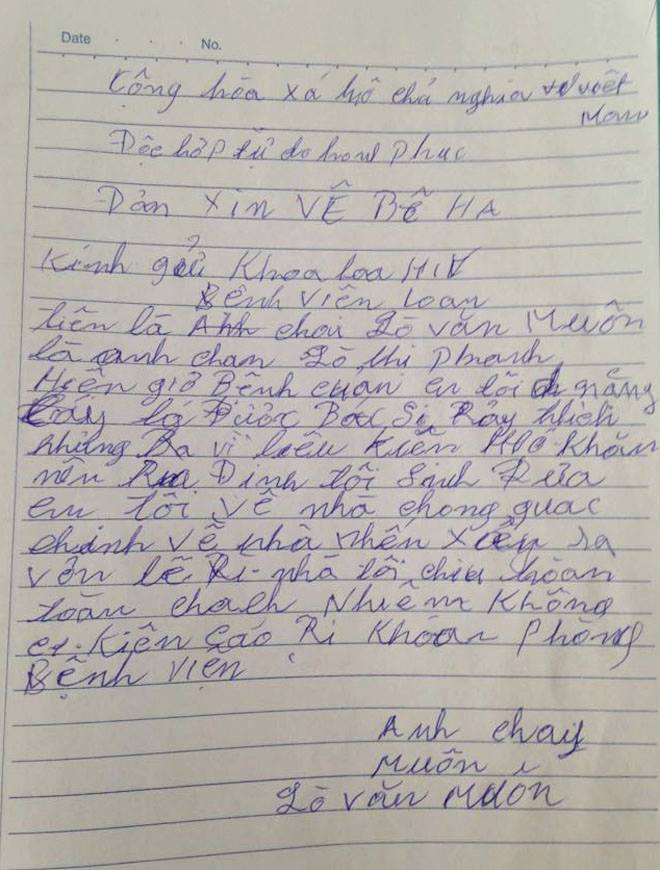 Date . . . No.
Cộng hòa xá hộ chủ nghia việt
Mam
Độc hập tử do hanh Phuc
Đản XIN VỄ BỄ HA
Kính gửi Khoa loa HIV
Bênh viên Loan
tiên là Anh chai Lò văn Muôn
là anh chan Lò thi phanh
Hiên giờ Bênh cuan em tôi năng
lấy là Được Bac Sĩ Rảy thich
nhưng Ba vì liêu Kiên Hoc Khăn
nên Rua Đinh tôi Sinh Đưa
em tôi vê nhà chong quac
chinh vê nhà nhên Xiểu ra
vón lê Ri nhà tôi chiu hoan
toàn chach Nhiêm Không
Kiên Cáo Ri Khoan phong
Bệnh viện
Anh chay
Muôn
Lò văn Muôn